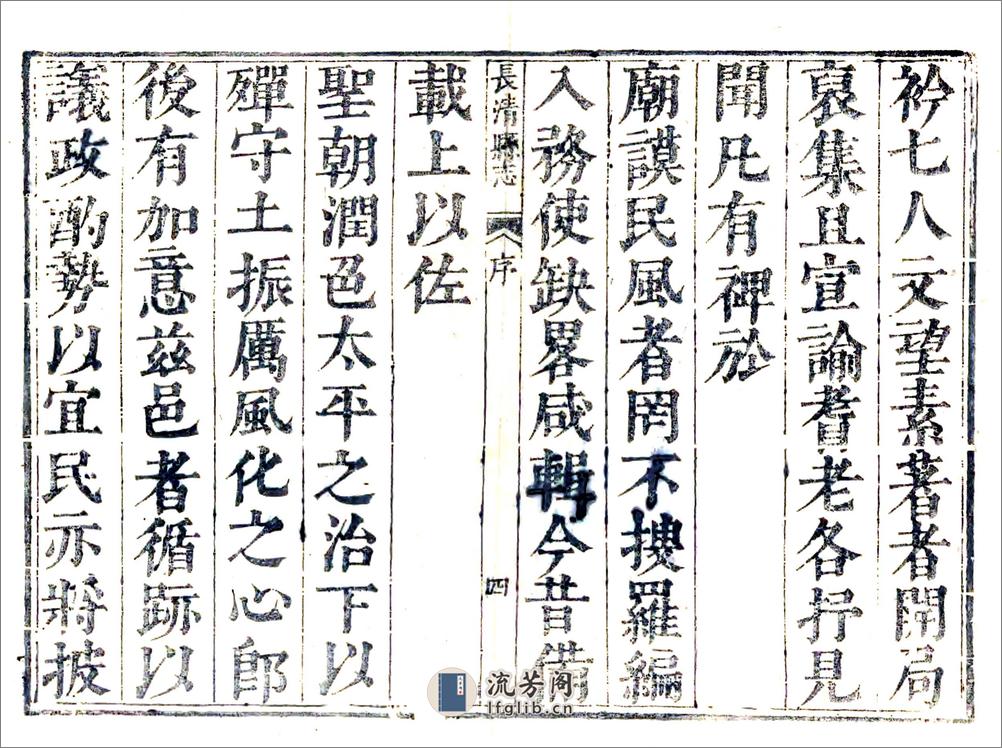 衿七人文望素著者開局
裒集且宣諭耆老各抒見
聞凡有裨於
廟謨民風者罔不搜羅編
入務使缺畧咸輯今昔備
長清縣志 序 四
載上以佐
聖朝潤色太平之治下以
殫守土振厲風化之心郎
後有加意兹邑者循跡以
議政酌勢以宜民亦將披
流芳阁
lfglib.cn